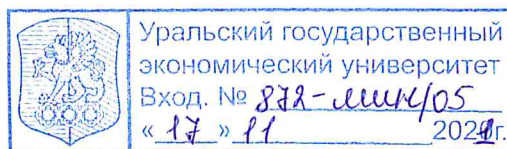 Уральский государственный
экономический университет
Вход. № 872-мин/05
« 17 » 11 2021г.